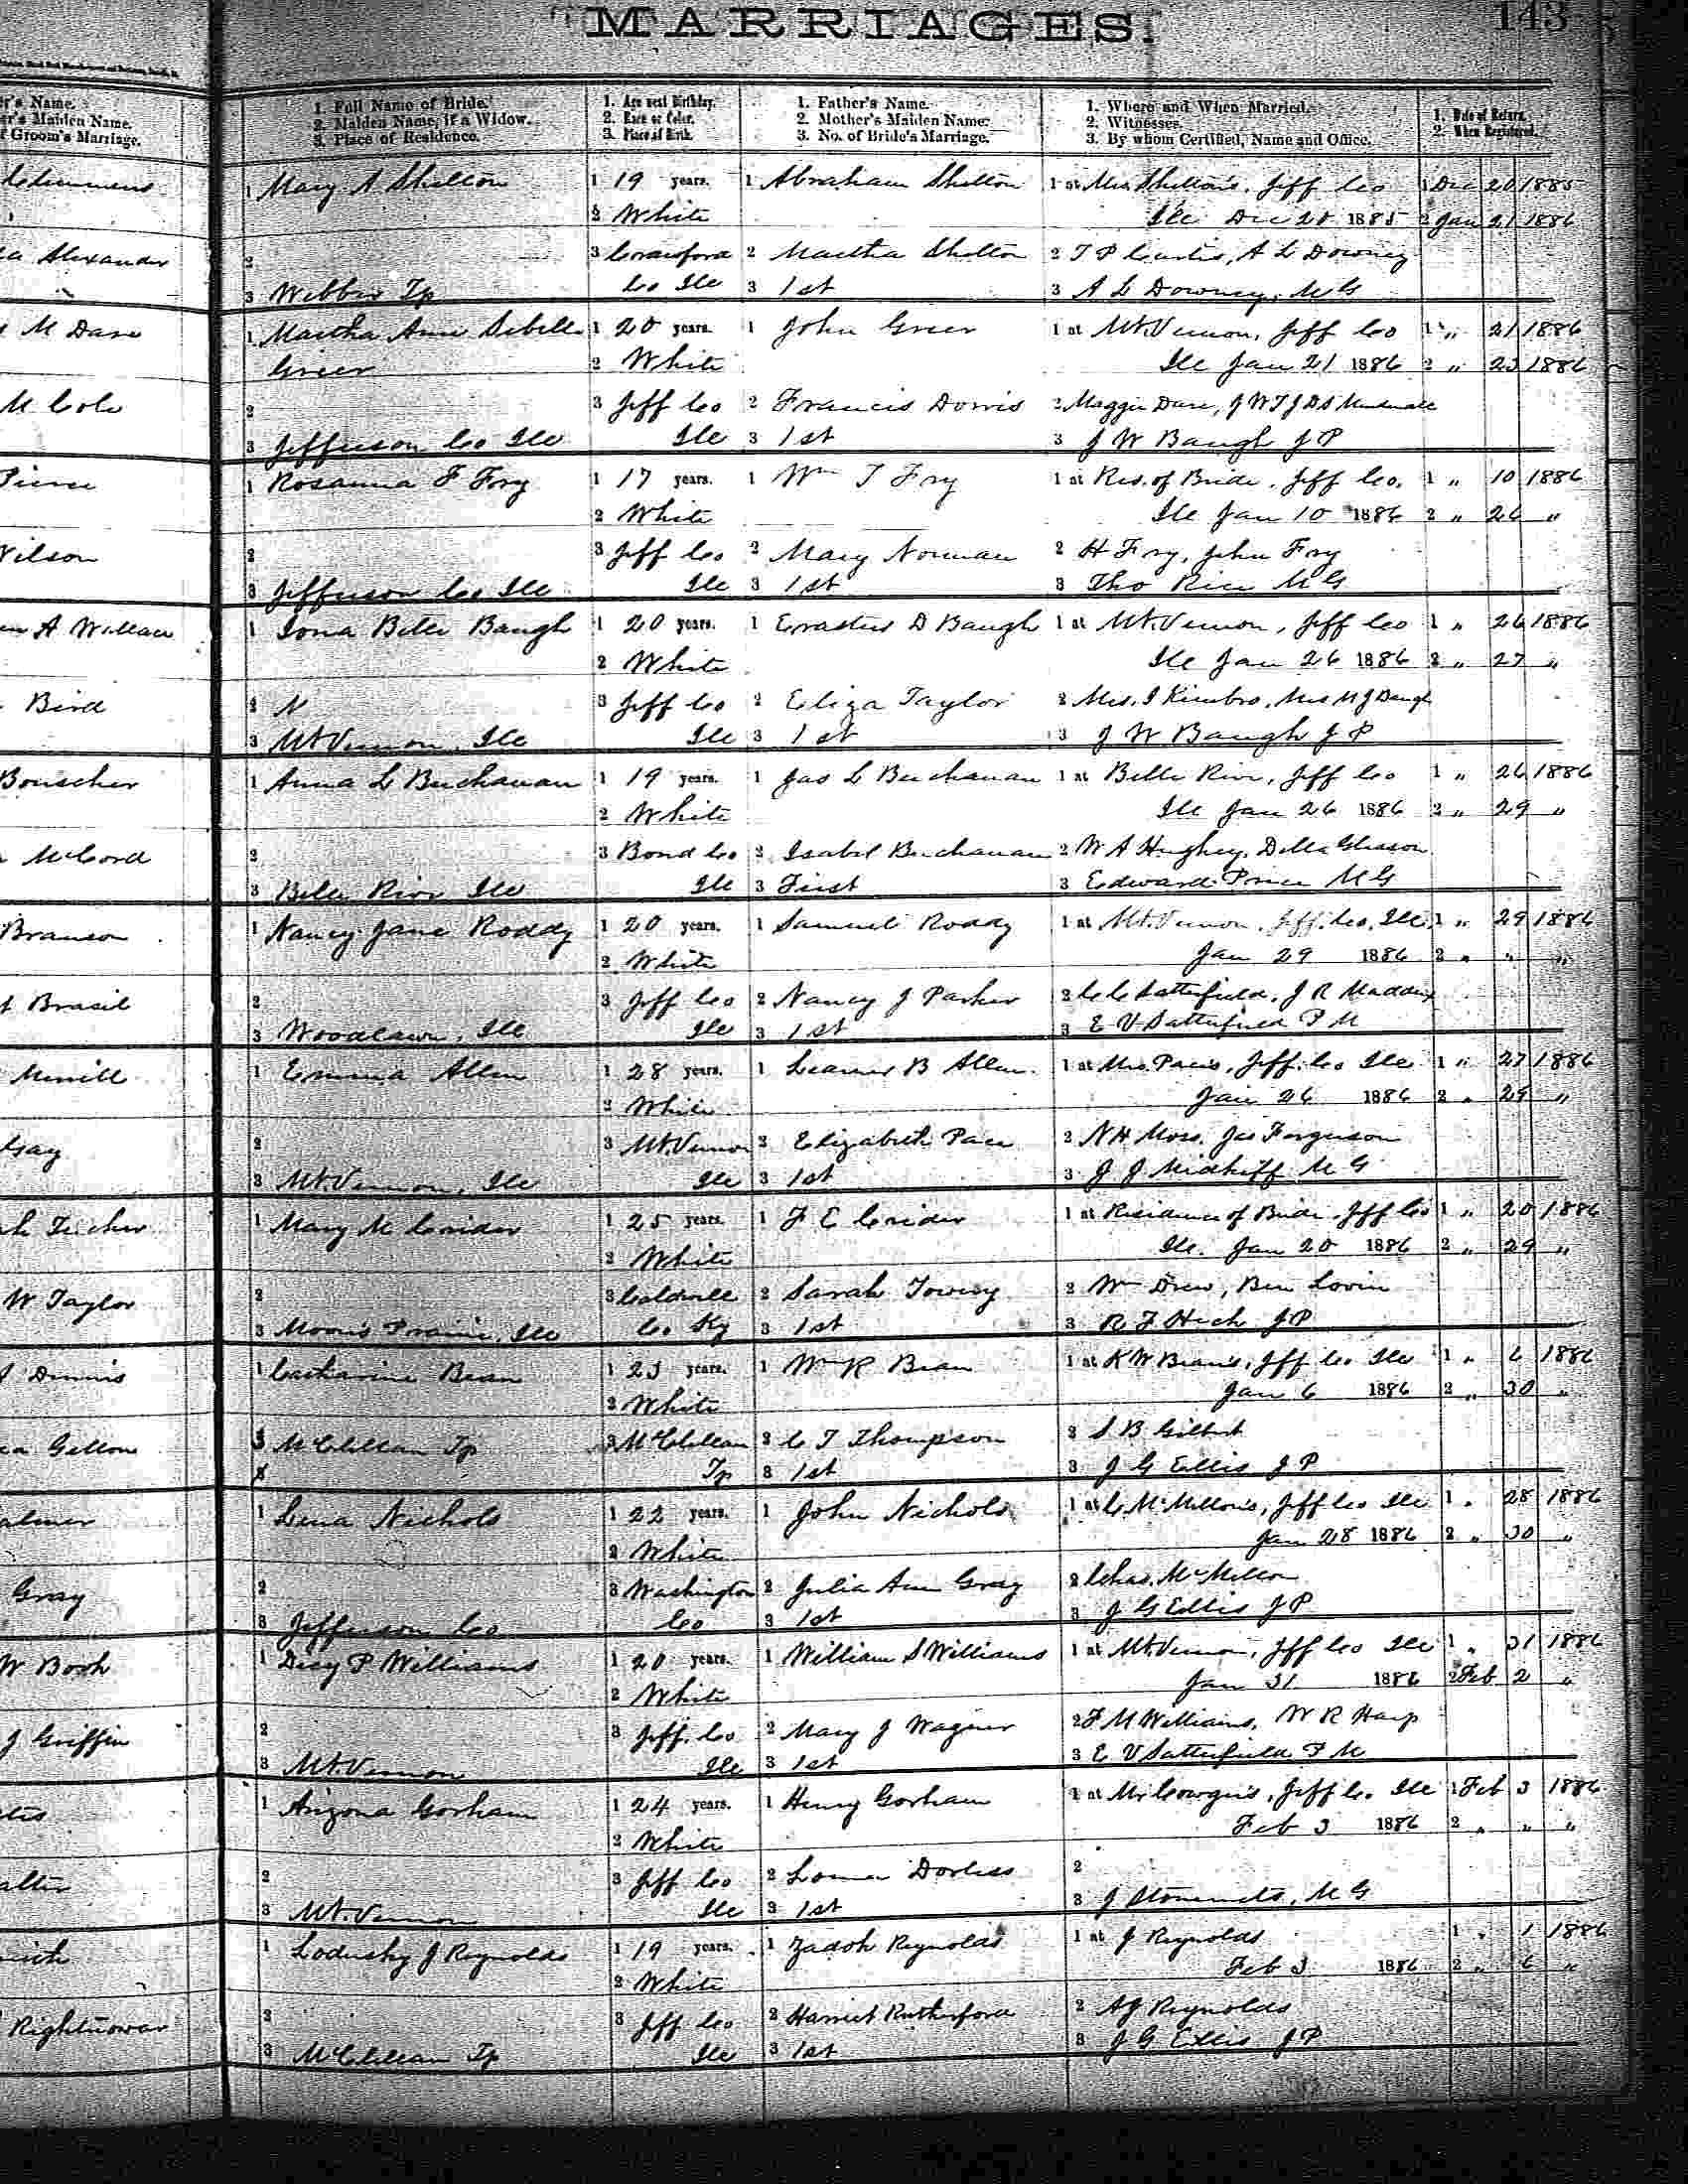 MARRIAGES.
143
1. Full Name of Bride.
2. Maiden Name, if a Widow.
3. Place of Residence.
1. Age next Birthday.
2. Race or Color.
3. Place of Birth.
1. Father's Name.
2. Mother's Maiden Name.
3. No. of Bride's Marriage.
1. Where and When Married.
2. Witnesses.
3. By whom Certified, Name and Office.
1. Date of Return.
2. When Registered.
r's Name.
er's Maiden Name.
f Groom's Marriage.
1 Mary A Shelton 1 19 years. 1 Abraham Shelton 1 at Mrs. Shelton's, Jeff Co 1 Dec 20 1885
2 White Ill Dec 20 1885 2 Jan 21 1886
a Alexander 2 3 Crawford 2 Martha Shelton 2 T P Curtis, A L Downey
3 Webber Tp Co Ill 3 1st 3 A L Downey, M G
M Dare 1 Martha Ann Sibelle 1 20 years. 1 John Greer 1 at Mt. Vernon, Jeff Co 1 " 21 1886
Greer 2 White Ill Jan 21 1886 2 " 23 1886
M Cole 2 3 Jeff Co 2 Francis Dorris 2 Maggie Dare,
3 Jefferson Co Ill Ill 3 1st 3 J W Baugh J P
Pierce 1 Rosanna F Fry 1 17 years. 1 Wm T Fry 1 at Res. of Bride, Jeff Co. 1 " 10 1886
2 White Ill Jan 10 1886 2 " 26 "
Wilson 2 3 Jeff Co 2 Mary Norman 2 H Fry, John Fry
3 Jefferson Co Ill Ill 3 1st 3 Tho Rice M G
A Wallace 1 Iona Belle Baugh 1 20 years. 1 Erastus D Baugh 1 at Mt. Vernon, Jeff Co 1 " 26 1886
2 White Ill Jan 26 1886 2 " 27 "
Bird 2 N 3 Jeff Co 2 Eliza Taylor 2 Mrs. I Kimbro, Mrs M J Baugh
3 Mt Vernon, Ill Ill 3 1st 3 J W Baugh J P
Bouscher 1 Anna L Buchanan 1 19 years. 1 Jas L Buchanan 1 at Belle Rive, Jeff Co 1 " 26 1886
2 White Ill Jan 26 1886 2 " 29 "
McCord 2 3 Bond Co 2 Isabel Buchanan 2 W A Hughey, Della Gleason
3 Belle Rive Ill Ill 3 First 3 Edward Price M G
Branson 1 Nancy Jane Roddy 1 20 years. 1 Samuel Roddy 1 at Mt. Vernon, Jeff. Co, Ill 1 " 29 1886
2 White Jan 29 1886 2 " " "
Brasil 2 3 Jeff Co 2 Nancy J Parker 2 C C Satterfield, J R Maddux
3 Woodlawn, Ill Ill 3 1st 3 E V Satterfield P M
Merrill 1 Emma Allen 1 28 years. 1 B Allen 1 at Mrs. Pace's, Jeff. Co Ill 1 " 27 1886
2 White Jan 26 1886 2 " 29 "
Gay 2 3 Mt. Vernon 2 Elizabeth Pace 2 N H Moss, Jas Ferguson
3 Mt. Vernon, Ill Ill 3 1st 3 J J Midkiff M G
Tucker 1 Mary M Crider 1 25 years. 1 F E Crider 1 at Residence of Bride, Jeff Co 1 " 20 1886
2 White Ill. Jan 20 1886 2 " 29 "
W Taylor 2 3 Caldwell 2 Sarah Towery 2 Wm Drew, Ben Lovin
3 Moore's Prairie, Ill Co Ky 3 1st 3 R F Hick J P
Dennis 1 Catharine Bean 1 23 years. 1 Wm R Bean 1 at K W Bean's, Jeff Co Ill 1 " 6 1886
2 White Jan 6 1886 2 " 30 "
Gellon 3 McClellan Tp 3 McClellan 2 C T Thompson 2 S B Gilbert
Tp 3 1st 3 J G Ellis J P
almer 1 Lena Nichols 1 22 years. 1 John Nichols 1 at C McMillon's, Jeff Co Ill 1 " 28 1886
2 White Jan 28 1886 2 " 30 "
Gray 2 3 Washington 2 Julia Ann Gray 2 Chas. McMillon
3 Jefferson Co Co 3 1st 3 J G Ellis J P
W Bosh 1 Dicy P Williams 1 20 years. 1 William S Williams 1 at Mt. Vernon, Jeff Co Ill 1 " 31 1886
2 White Jan 31 1886 2 Feb 2 "
J Griffin 2 3 Jeff. Co 2 Mary J Wagner 2 F M Williams, W R Harp
3 Mt. Vernon Ill 3 1st 3 E V Satterfield P M
1 Arizona Gorham 1 24 years. 1 Henry Gorham 1 at Mr Cowger's, Jeff Co. Ill 1 Feb 3 1886
2 White Feb 3 1886 2 " " "
alter 2 3 Jeff Co 2 Dorliss 2
3 Mt. Vernon Ill 3 1st 3 J Stonemets, M G
1 Lodusky J Reynolds 1 19 years. 1 Zadok Reynolds 1 at J Reynolds 1 " 1 1886
2 White Feb 3 1886 2 " 6 "
Rightnowar 2 3 Jeff Co 2 Harriet Rutherford 2 A J Reynolds
3 McClellan Tp Ill 3 1st 3 J G Ellis J P